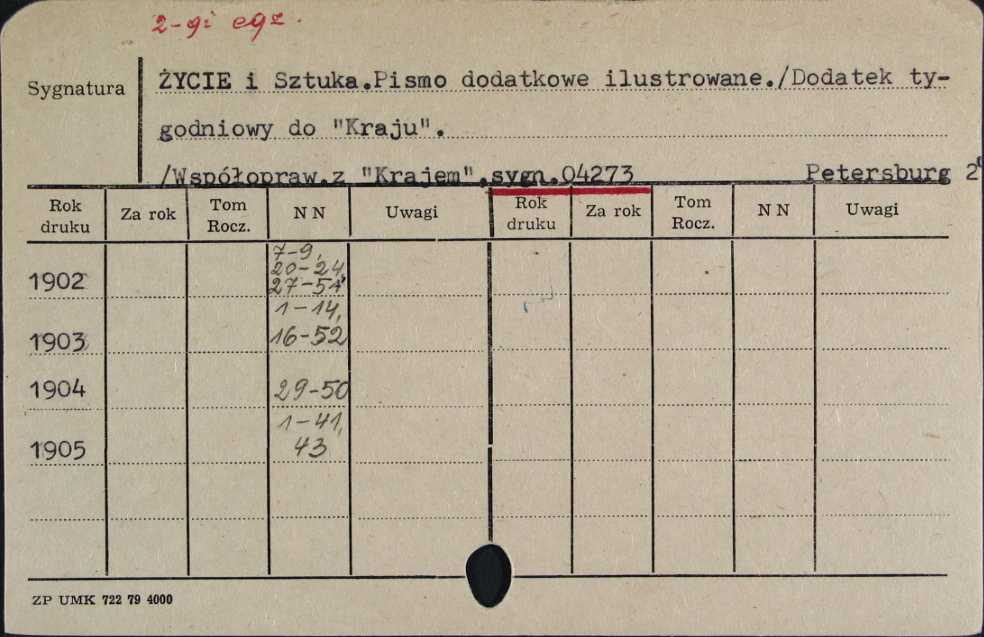 2-gi egz.
Sygnatura
ŻYCIE i Sztuka.Pismo dodatkowe ilustrowane./Dodatek ty-
godniowy do "Kraju".
/Współopraw.z "Krajem".sygn.04273 Petersburg 2°
Rok druku Za rok Tom Rocz. N N Uwagi Rok druku Za rok Tom Rocz. N N Uwagi
7-9,
20-24,
1902 27-51
1-14,
1903 16-52
1904 29-50
1-41,
1905 43
ZP UMK 722 79 4000